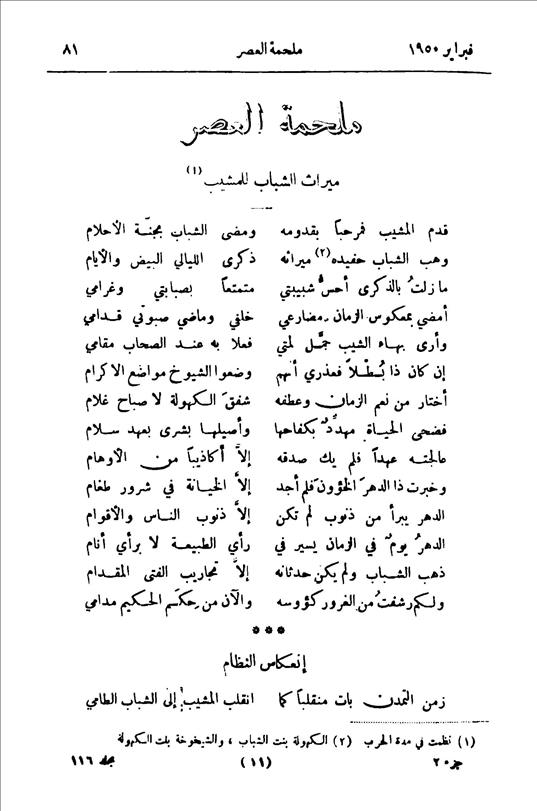 فبراير ١٩٥٠ ملحمة العصر ٨١
ملحمة العصر
ميراث الشباب للمشيب (١)
قدم المشيب فمرحباً بقدومه ومضى الشباب بمجنّة الأحلام
وهب الشباب حفيده (٢) ميراثه ذكرى الليالي البيض والأيام
ما زلتُ بالذكرى أحسُّ شبيبتي متمتعاً بصبابتي وغرامي
أمضي بمعكوس الزمان مضارعي خلفي وماضي صبوتي قدامي
وأرى بهاء الشيب جمَّل لمتي فعلا به عند الصحاب مقامي
إن كان ذا بُطْلاً فعذري أنهم وضعوا الشيوخ مواضع الاكرام
أختار من نعم الزمان وعطفه شفقَ الكهولة لا صباح غلام
فضحى الحياة مهدَّدٌ بكفاحها وأصيلها بشرى بعهد سلام
عالجته عهداً فلم يك صدقه إلاَّ أكاذيباً من الأوهام
وخبرت ذا الدهرَ الخؤون فلم أجد إلاَّ الخيانة في شرور طغام
الدهر يبرأ من ذنوب لم تكن إلاَّ ذنوب الناس والأقوام
الدهرُ يومٌ في الزمان يسير في رأي الطبيعة لا برأي أنام
ذهب الشباب ولم يكن حدثانه إلاَّ تجاريب الفتى المقدام
ولكم رشفتُ من الغرور كؤوسه والآن من حِكَم الحكيم مدامي
***
إنعكاس النظام
زمن التمدن بات منقلباً كما انقلب المشيبُ إلى الشباب الطامي
(١) نظمت في مدة الحرب (٢) الكهولة بنت الشباب ، والشيخوخة بنت الكهولة
جزء ٢ (١١) مجلد ١١٦